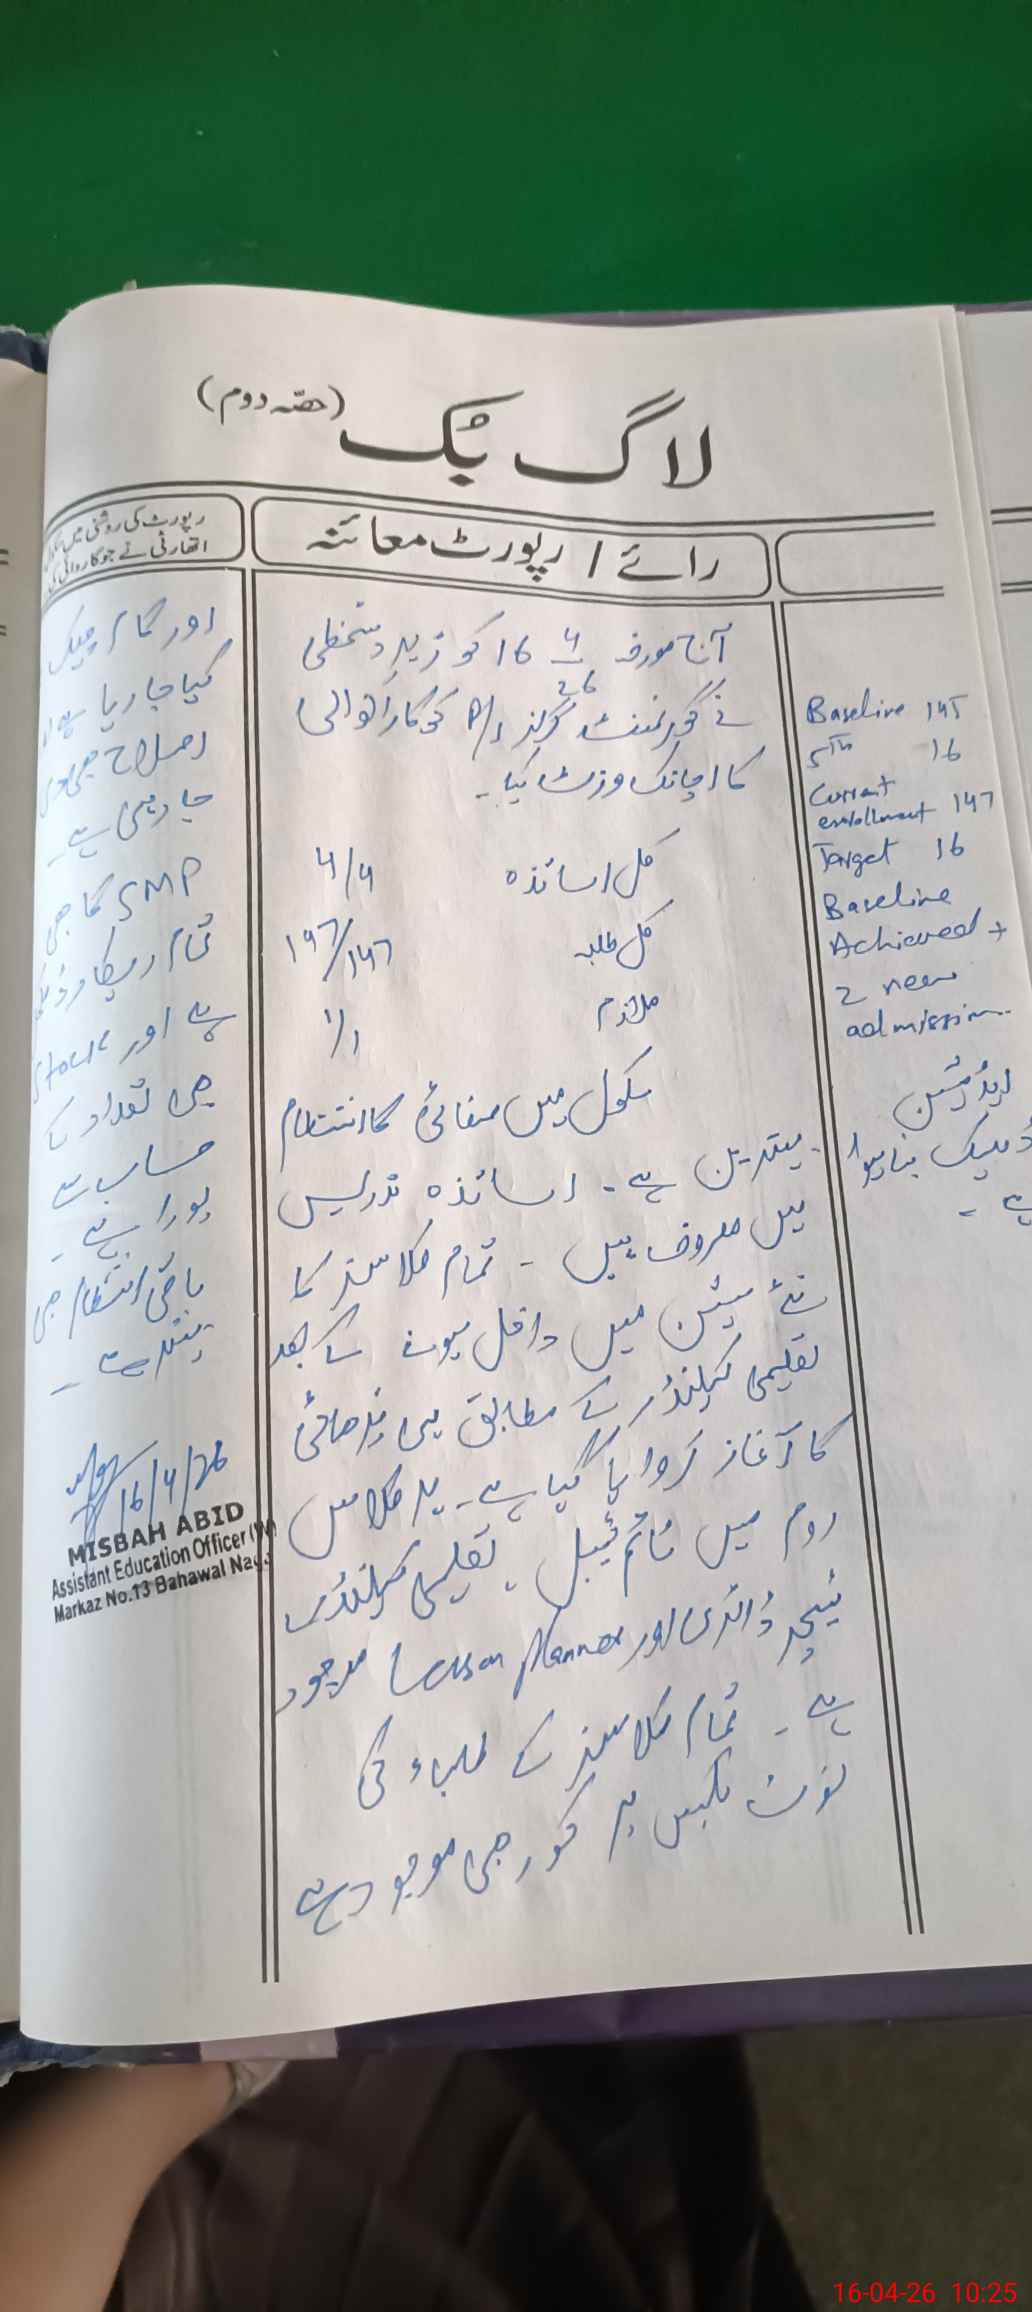 لاگ بک (حصہ دوم)
رائے / رپورٹ معائنہ
رپورٹ کی روشنی میں
اتھارٹی نے جو کاروائی کی
آج مورخہ 16 4 26 کو زیر دستخطی
نے گورنمنٹ گرلز P/S
کا اچانک وزٹ کیا۔
کل اساتذہ 4/4
کل طلبہ 147/147
ملازم 1/1
سکول میں صفائی کا انتظام
بہترین ہے۔ اساتذہ تدریس
میں مصروف ہیں۔ تمام کلاسز کا
نئے سیشن میں داخل ہونے کے بعد
تعلیمی کیلنڈر کے مطابق ہی پڑھائی
کا آغاز کروایا گیا ہے۔ ہر کلاس
روم میں ٹائم ٹیبل، تعلیمی کیلنڈر
ٹیچر ڈائری اور Lesson Planner موجود
ہے۔ تمام کلاسز کے طلباء کی
نوٹ بکس پر کور بھی موجود ہے
اور کام چیک
کیا جا رہا ہے
اصلاح بھی کی
جا رہی ہے۔
SMP کا بھی
تمام ریکارڈ
ہے اور Stock
بھی تعداد کے
حساب سے
پورا ہے۔
باقی انتظام بھی
بہتر ہے۔
16/4/26
MISBAH ABID
Assistant Education Officer (W)
Markaz No.13 Bahawal Nagar
Baseline 145
16
Current
enrollment 147
Target 16
Baseline
Achieved +
2 new
admission.
ایڈمیشن
ڈیسک بنا ہوا
ہے۔
16-04-26 10:25